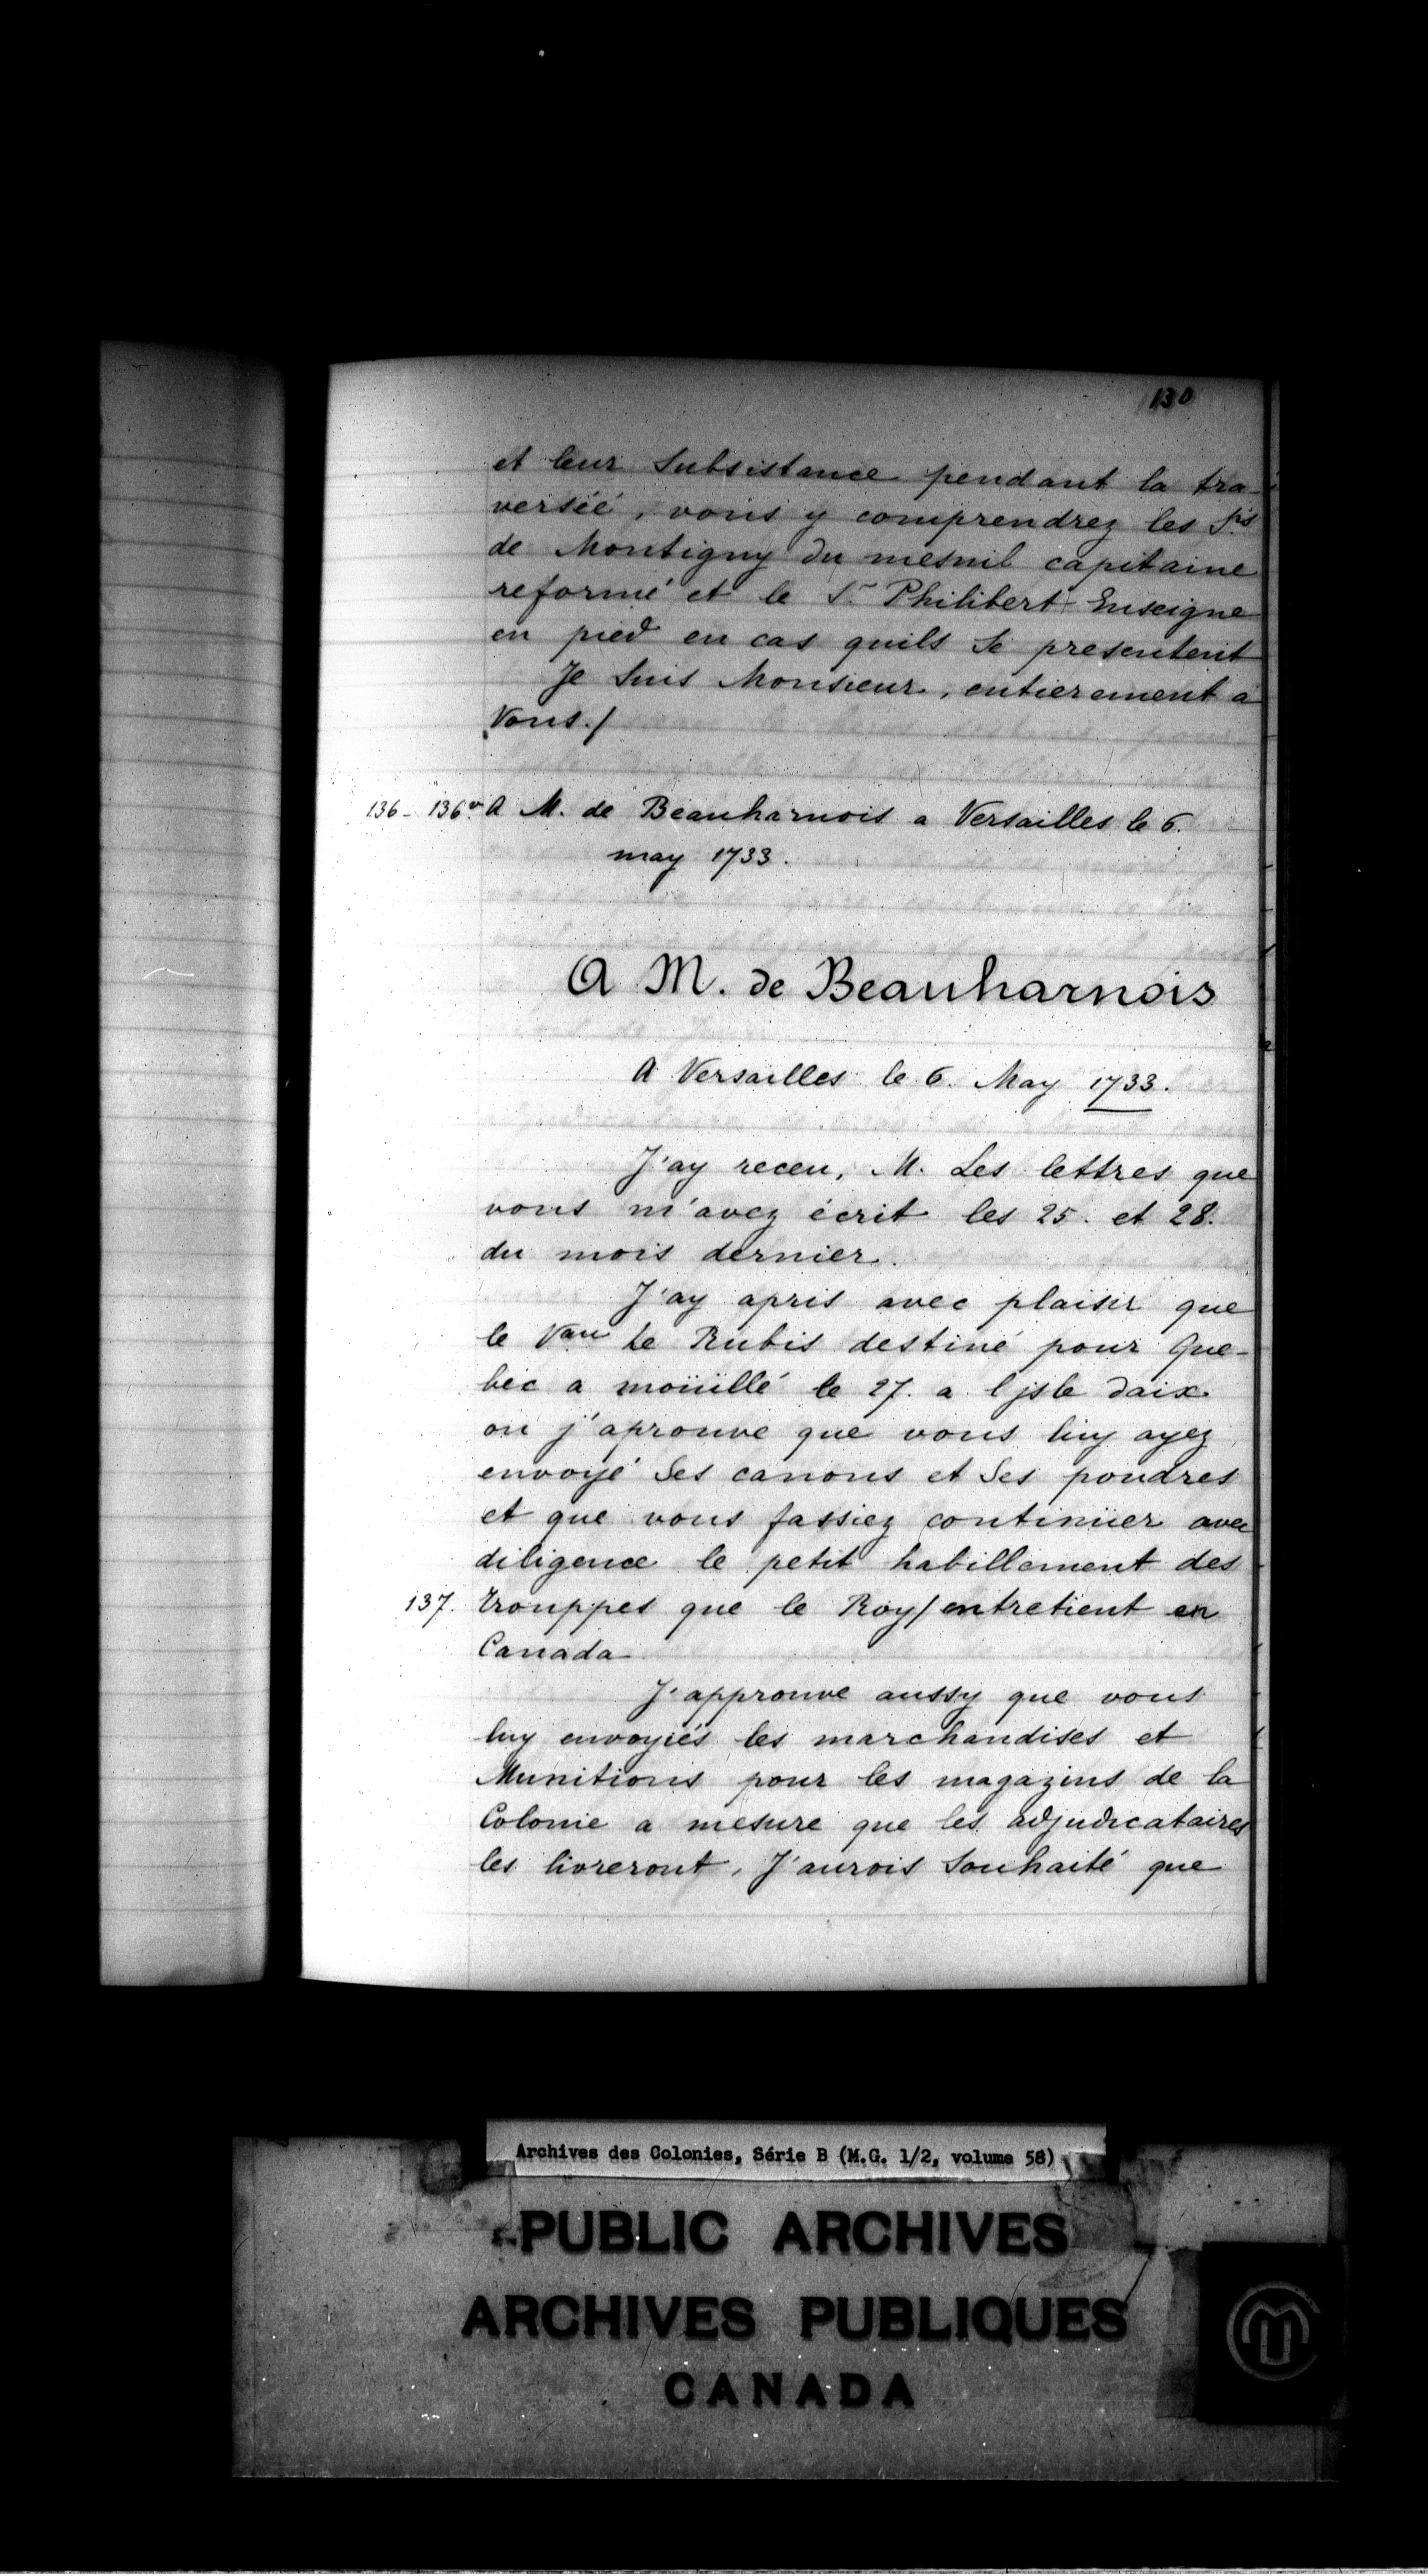 130
et leur Subsistance pendant la tra-
versée, vous y comprendrez les Srs
de Montigny du mesnil capitaine
reformé et le Sr Philibert Enseigne
en pied en cas quils Se presentent
Je Suis Monsieur, entierement a
Vous./
136 - 136v A M. de Beauharnois a Versailles le 6.
may 1733.
A M. de Beauharnois
A Versailles le 6. May 1733.
J'ay receu, M. Les lettres que
vous m'avez écrit les 25. et 28.
du mois dernier.
J'ay apris avec plaisir que
le Vau Le Rubis destiné pour Que-
bec a moüillé le 27. a l jsle daix
ou j'aprouve que vous luy ayez
envoyé Ses canons et Ses poudres
et que vous fassiez continüer avec
diligence le petit habillement des
137. trouppes que le Roy/entretient en
Canada
J'approuve aussy que vous
luy envoyiés les marchandises et
Munitions pour les magazins de la
Colonie a mesure que les adjudicataires
les livreront, J'aurois Souhaité que
Archives des Colonies, Série B (M.G. 1/2, volume 58)
PUBLIC ARCHIVES
ARCHIVES PUBLIQUES
CANADA